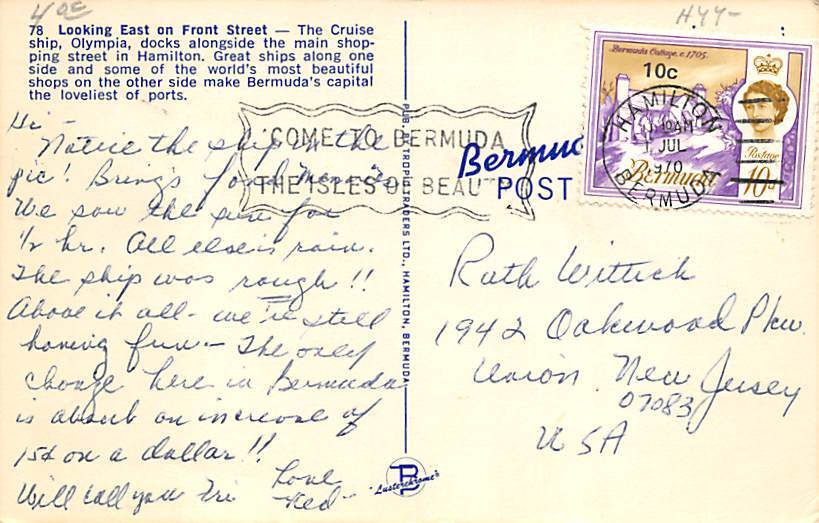 40¢
H44-
78 Looking East on Front Street — The Cruise
ship, Olympia, docks alongside the main shop-
ping street in Hamilton. Great ships along one
side and some of the world's most beautiful
shops on the other side make Bermuda's capital
the loveliest of ports.
Hi -
Notice the ship in the
pic! Brings fond mem's
We saw the sun for
½ hr. All else is rain.
The ship was rough!!
Above it all - we're still
having fun - The only
change here in Bermuda
is about an increase of
15¢ on a dollar!!
Will call you Fri
Love
Ted
COME TO BERMUDA
THE ISLES OF BEAUTY
PUB. BY TROPIC TRADERS LTD., HAMILTON, BERMUDA
Lusterchrome's
Bermuda
POST
Bermuda Cottage, c.1705
10c
Postage
Bermuda
10d
HAMILTON
10 AM
1 JUL
1970
BERMUDA
Ruth Wittich
1942 Oakwood Pkw.
Union, New Jersey
07083
USA